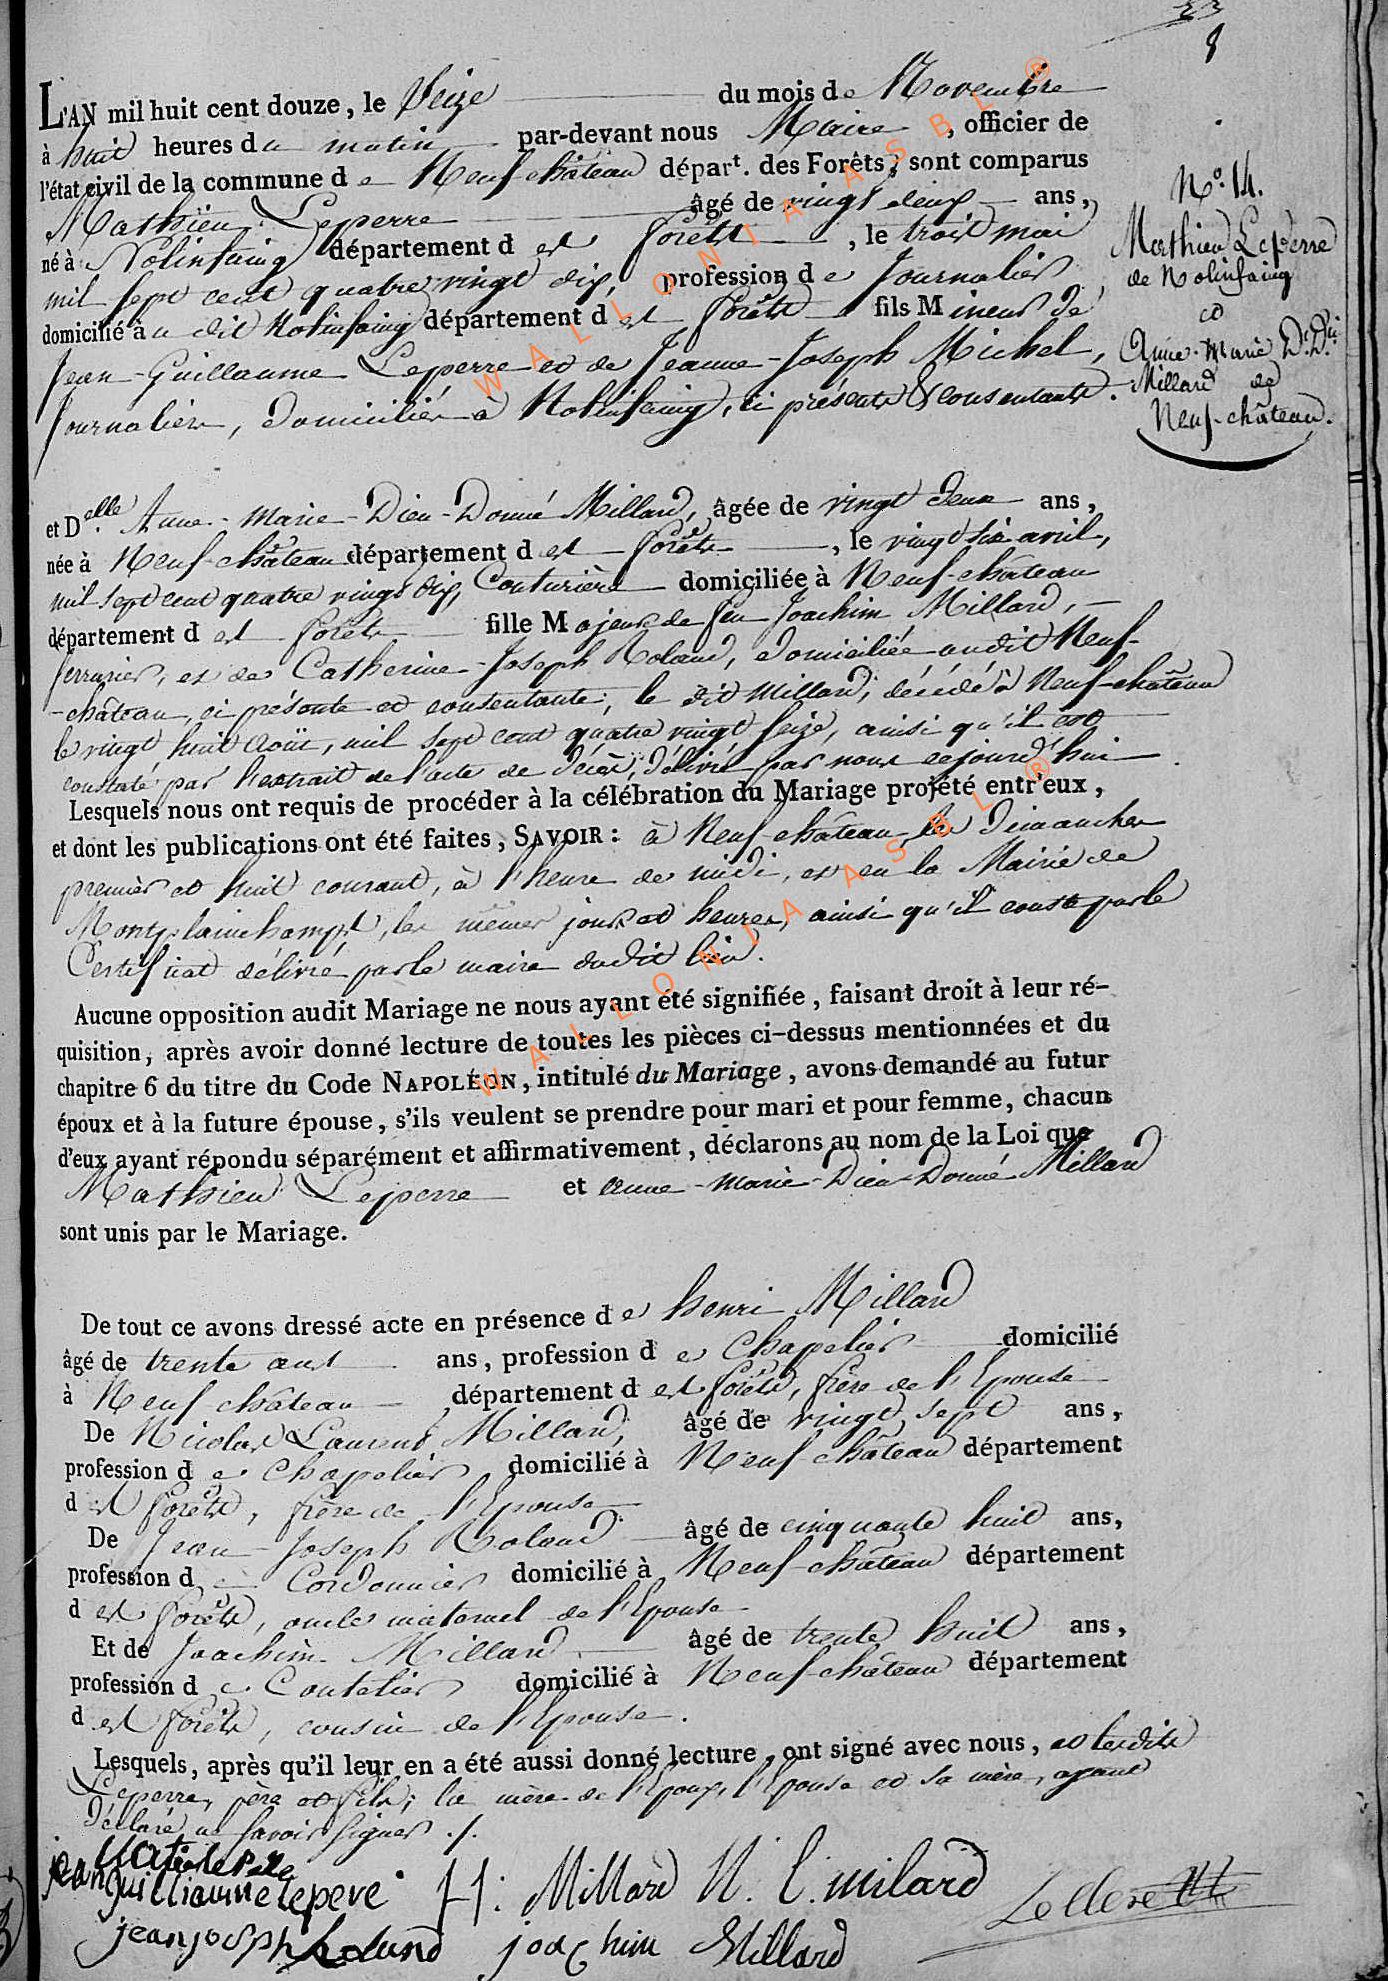 23
8
L'AN mil huit cent douze, le Seize du mois de Novembre
à huit heures du matin par-devant nous Maire, officier de
l'état civil de la commune de Neuf-châteauépart. des Forêts; sont comparus
Mathieu Leperre âgé de vingt deux ans,
né à Nolinfaing département des forêts, le trois mai
mil sept cent quatre vingt dix, profession de Journalier,
domicilié audit Nolinfaing département des forêts fils Mineur de
Jean-Guillaume Leperre et de Jeanne-Joseph Michel,
Journaliers, domiciliés à Nolinfaing, ci présents & consentants.
No. 14.
Mathieu Leperre
de Nolinfaing
et
Anne-Marie D. D.né
Millard de
Neuf-château.
et Delle Anne-Marie-Dieu-Donné Millard, âgée de vingt deux ans,
née à Neuf-château département des forêts, le vingt six avril,
mil sept cent quatre vingt dix, Couturière domiciliée à Neuf-château
département des forêts fille Majeure de feu Joachim Millard,
serrurier, et de Catherine-Joseph Roland, domiciliée audit Neuf-
-château, ci présente et consentante; le dit Millard, décédé à Neuf-château
le vingt huit Août, mil sept cent quatre vingt seize, ainsi qu'il est
constaté par l'extrait de l'acte de décès, délivré par nous cejourd'hui
Lesquels nous ont requis de procéder à la célébration du Mariage projété entr'eux,
et dont les publications ont été faites, SAVOIR: à Neuf-château, les Dimanches
premier et huit courant, à l'heure de midi, et en la Mairie de
Montplainchamps, les mêmes jours et heures, ainsi qu'il conste par le
Certificat délivré par le maire dudit lieu.
Aucune opposition audit Mariage ne nous ayant été signifiée, faisant droit à leur ré-
quisition, après avoir donné lecture de toutes les pièces ci-dessus mentionnées et du
chapitre 6 du titre du Code NAPOLÉON, intitulé du Mariage, avons demandé au futur
époux et à la future épouse, s'ils veulent se prendre pour mari et pour femme, chacun
d'eux ayant répondu séparément et affirmativement, déclarons au nom de la Loi que
Mathieu Leperre et anne-marie-Dieu-Donné Millard
sont unis par le Mariage.
De tout ce avons dressé acte en présence de henri Millard
âgé de trente ans ans, profession de Chapelier domicilié
à Neuf château département des forêts, frère de l'Epouse
De Nicolas Laurent Millard, âgé de vingt sept ans,
profession de Chapelier domicilié à Neuf-château département
des forêts, frère de l'Epouse
De Jean-Joseph Roland âgé de cinquante huit ans,
profession de Cordonnier domicilié à Neuf-château département
des forêts, oncle maternel de l'Epouse
Et de Joachim Millard âgé de trente huit ans,
profession de Coutelier domicilié à Neuf-château département
des forêts, cousin de l'Epouse.
Lesquels, après qu'il leur en a été aussi donné lecture, ont signé avec nous, et lesdits
Leperre, père et fils; la mère de l'Epoux, l'Epouse et sa mère, ayant
déclaré ne savoir signer ./.
jean guilliaume lepere H: Millard N. l. milard
jean joseph Roland joachim Millard
WALLONIA ASBL ®
WALLONIA ASBL ®